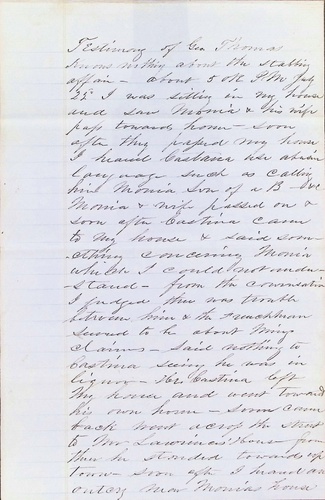 Testimony of Geo Thomas
knows nothing about the stabbing
affair - about 5 ock P.M. July
25th I was sitting in my house
and saw Monia & his wife
pass towards home - soon
after they passed my house
I heard Castina use obscene
language such as calling
him Monia Son of a B - &c
Monia & wife passed on &
soon after Castina came
to my house & said som-
-ething concerning Monia
which I could not under
-stand - from the conversation
I judged there was trouble
between him & the Frenchman
seemed to be about mining
claims - said nothing to
Castina seeing he was in
liquor - Castina left
my house and went toward
his own home - soon came
back went across the street
to Mr Lawrence's House from
then he started towards up
town - soon after I heard an
outcry near Monias house